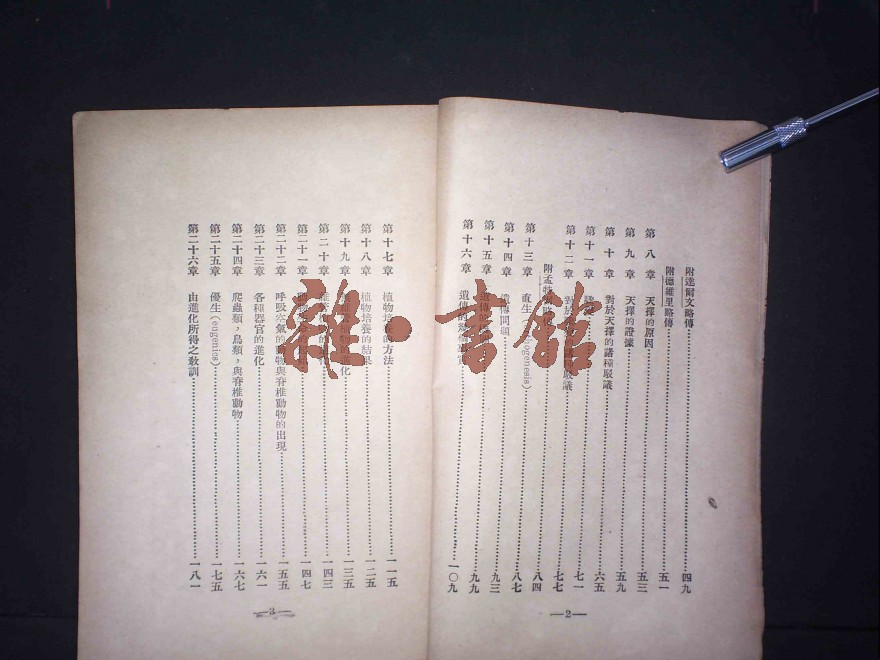 附達爾文略傳……四九
附德維里略傳……五一
第八章 天擇的原因……五三
第九章 天擇的證據……五九
第十章 對於天擇的諸種駁議……六五
第十一章……七一
第十二章 對於……駁議……七七
附孟……八四
第十三章 直生(……ogenesis)……八七
第十四章 遺傳問題……九三
第十五章 遺傳……九九
第十六章 遺傳的……一〇九
—2—
第十七章 植物培養的方法……一一五
第十八章 植物培養的結果……一二五
第十九章……植物的進化……一三五
第二十章……一四三
第二十一章……一四七
第二十二章 呼吸空氣的動物與脊椎動物的出現……一五五
第二十三章 各種器官的進化……一六一
第二十四章 爬蟲類,鳥類,與脊椎動物……一六七
第二十五章 優生(eugenics)……一七五
第二十六章 由進化所得之教訓……一八一
—3—
雜·書館